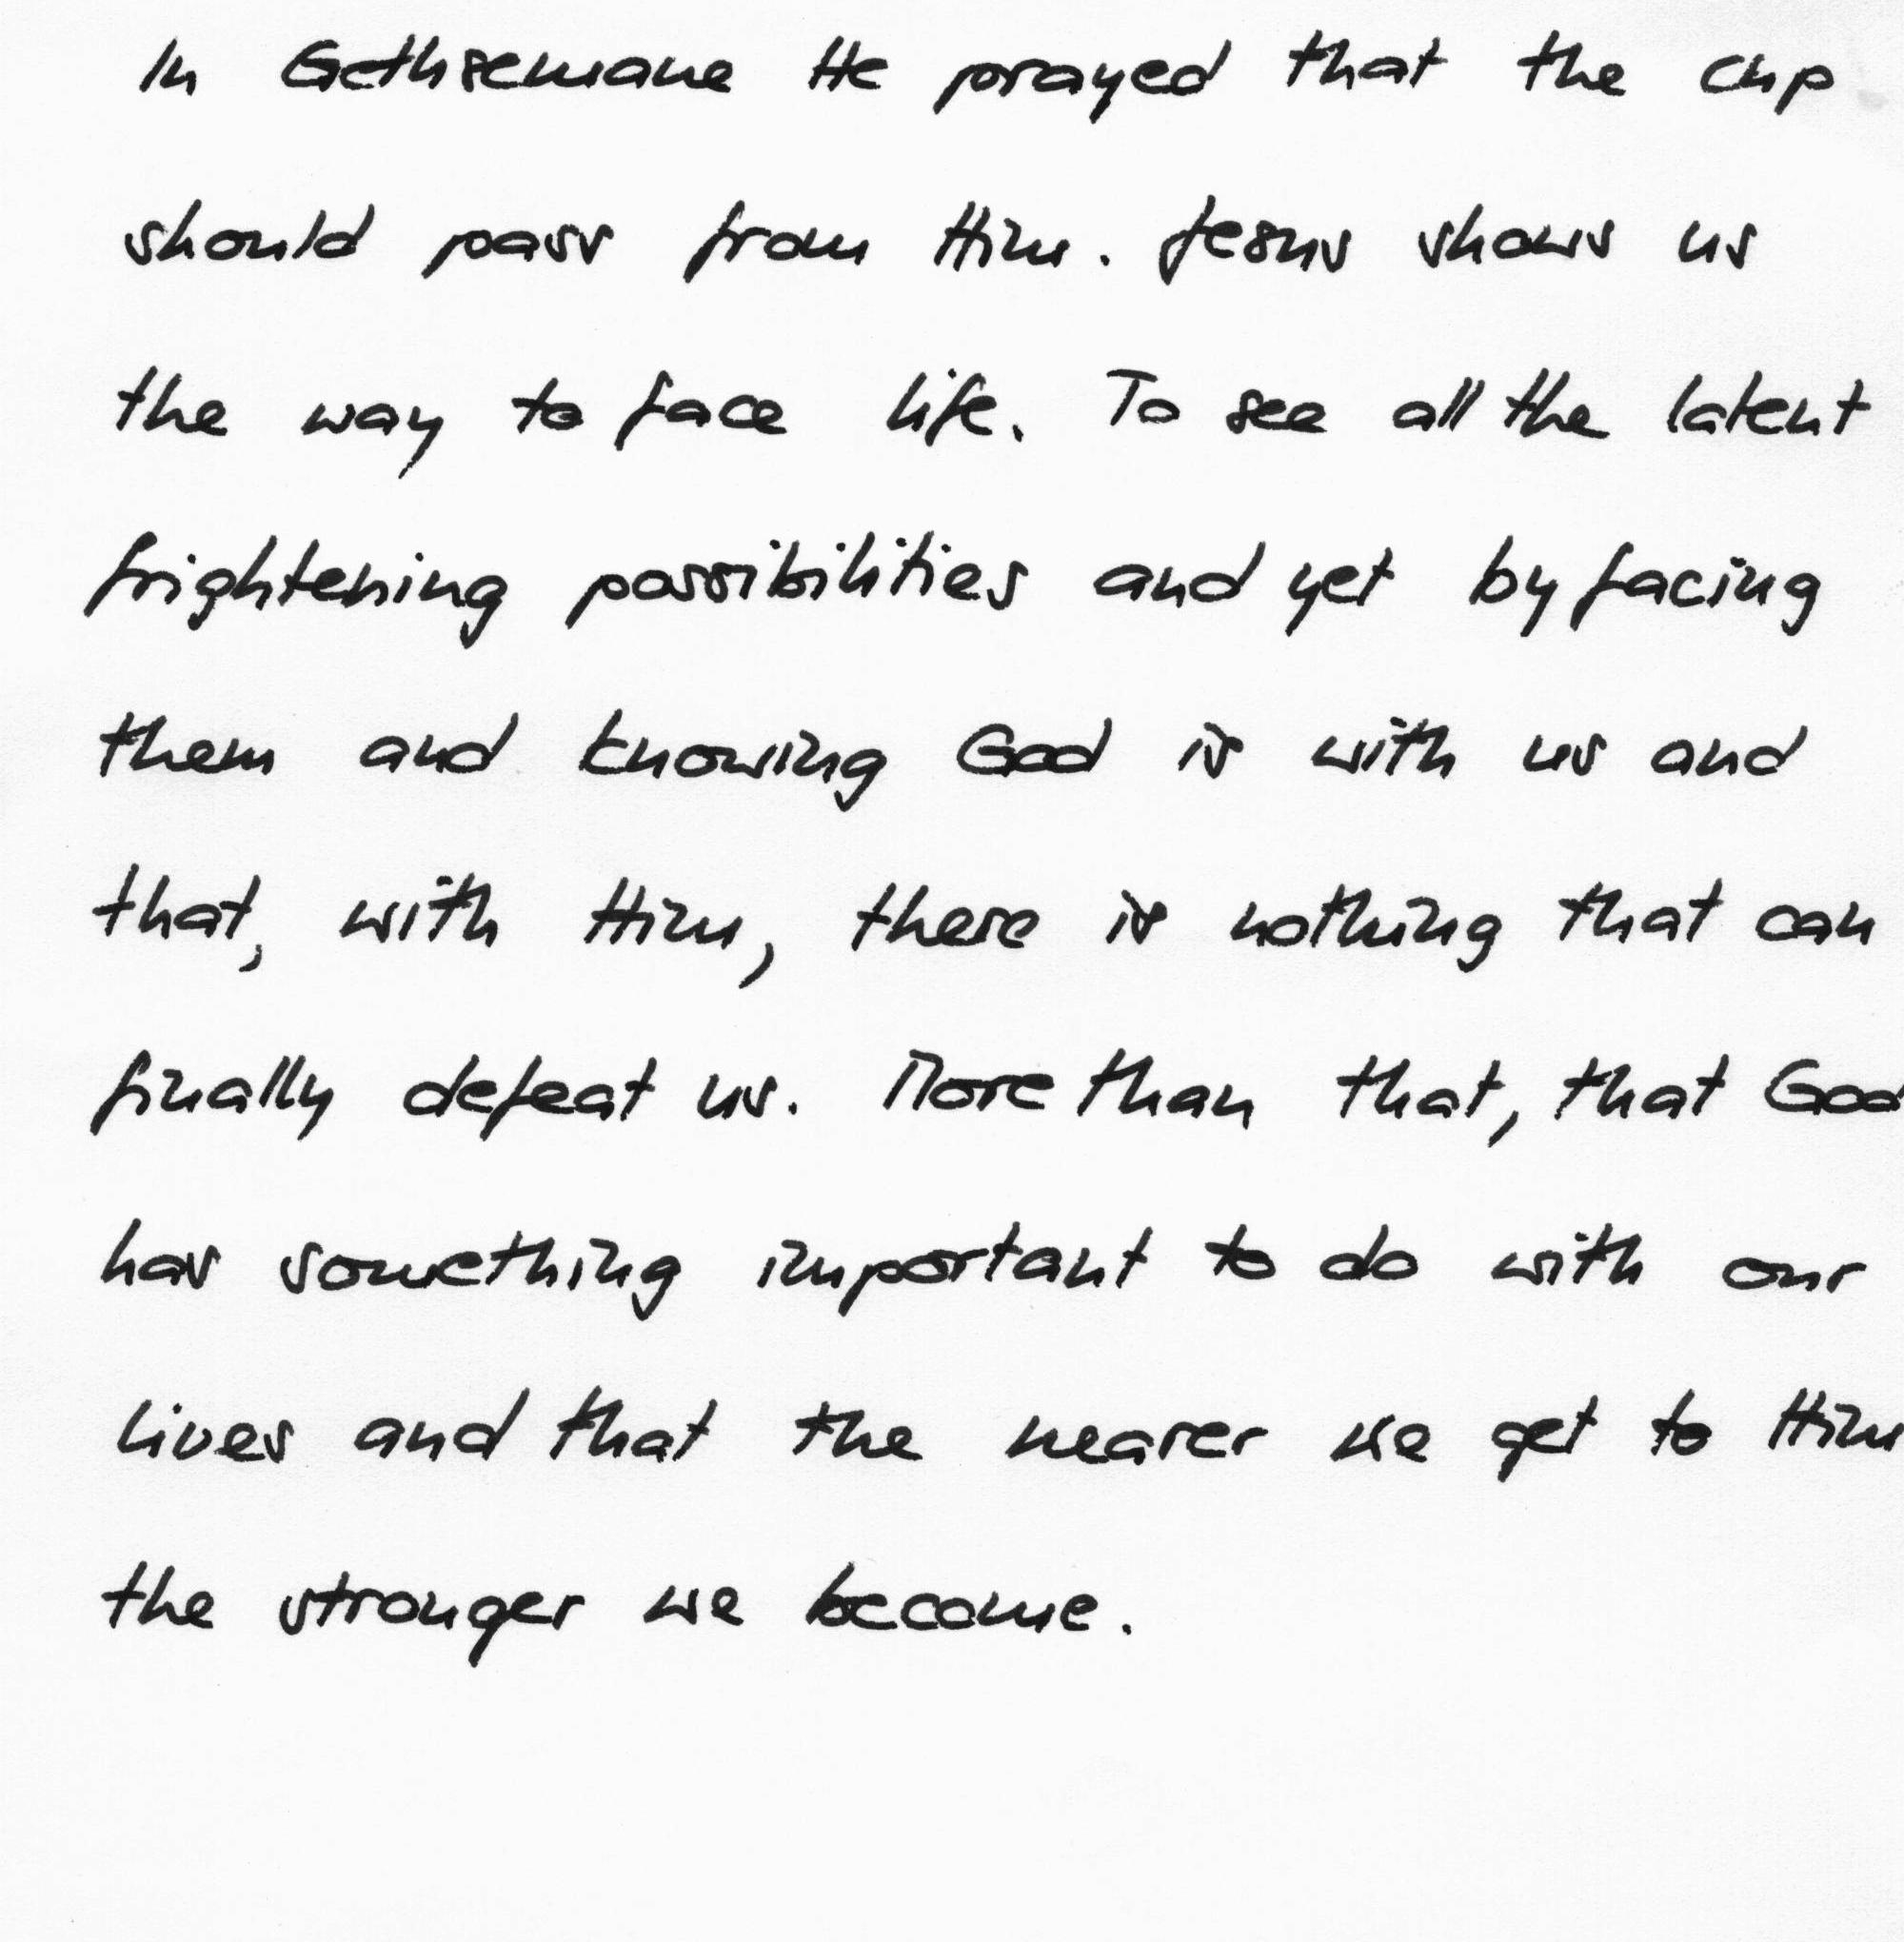 In Gethsemane He prayed that the cup
should pass from Him. Jesus shows us
the way to face life. To see all the latent
frightening possibilities and yet by facing
them and knowing God is with us and
that, with Him, there is nothing that can
finally defeat us. More than that, that God
has something important to do with our
lives and that the nearer we get to Him
the stronger we become.